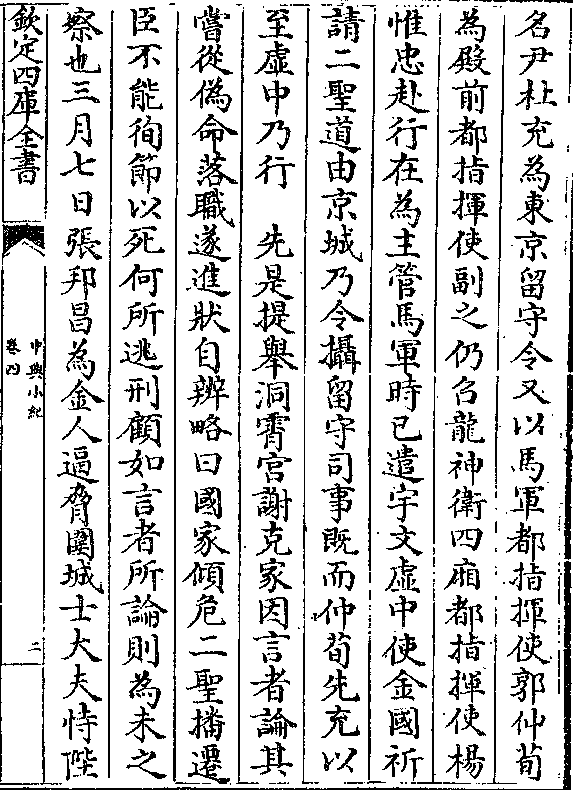 名尹杜充為東京留守令又以馬軍都指揮使郭仲荀
為殿前都指揮使副之仍召龍神衛四廂都指揮使楊
惟忠赴行在為主管馬軍時已遣宇文虛中使金國祈
請二聖道由京城乃令攝留守司事既而仲荀先充以
至虛中乃行　先是提舉洞霄宮謝克家因言者論其
嘗從偽命落職遂進狀自辨略曰國家傾危二聖播遷
臣不能徇節以死何所逃刑顧如言者所論則為未之
察也三月七日張邦昌為金人逼脅圍城士大夫恃陛
欽定四庫全書
中興小紀
卷四
二